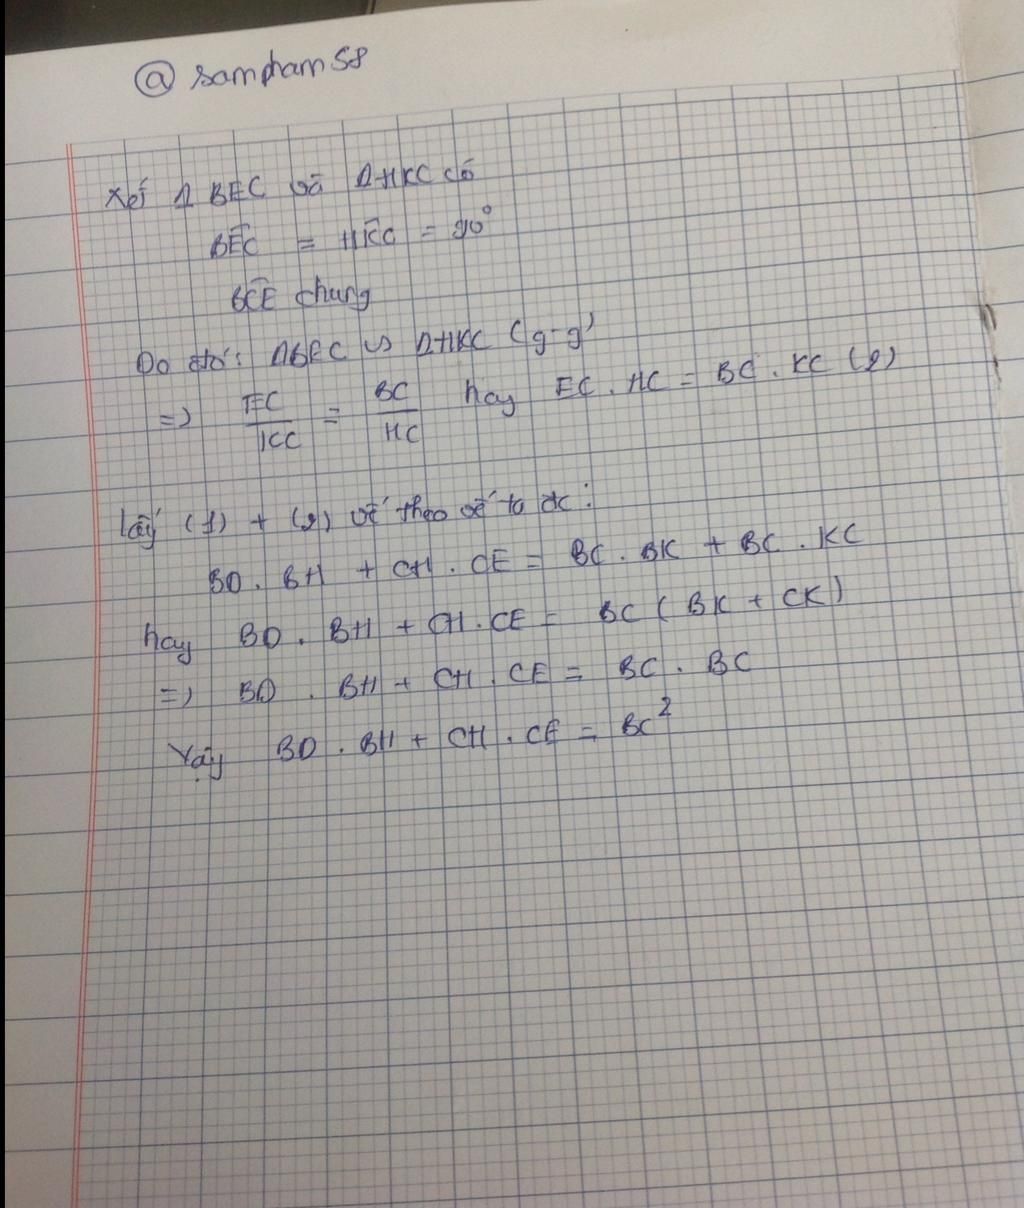 @ sampham58
Xét Δ BEC và Δ HKC có
BÊC = HK̂C = 90°
BĈE chung
Do đó: ΔBEC ∽ ΔHKC (g-g)
=> EC/KC = BC/HC hay EC . HC = BC . KC (2)
Lấy (1) + (2) vế theo vế ta đc :
BD . BH + CH . CE = BC . BK + BC . KC
hay BD . BH + CH . CE = BC ( BK + CK )
=> BD . BH + CH . CE = BC . BC
Vậy BD . BH + CH . CE = BC²